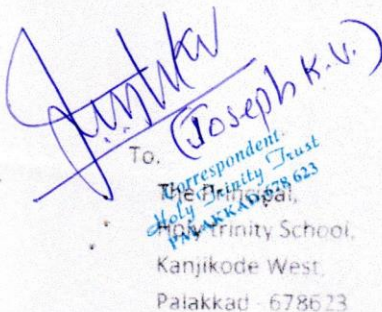 (Joseph K.V.)
To,
Correspondent.
Holy Trinity Trust
PALAKKAD-678 623
The Principal,
Holy trinity School,
Kanjikode West,
Palakkad - 678623